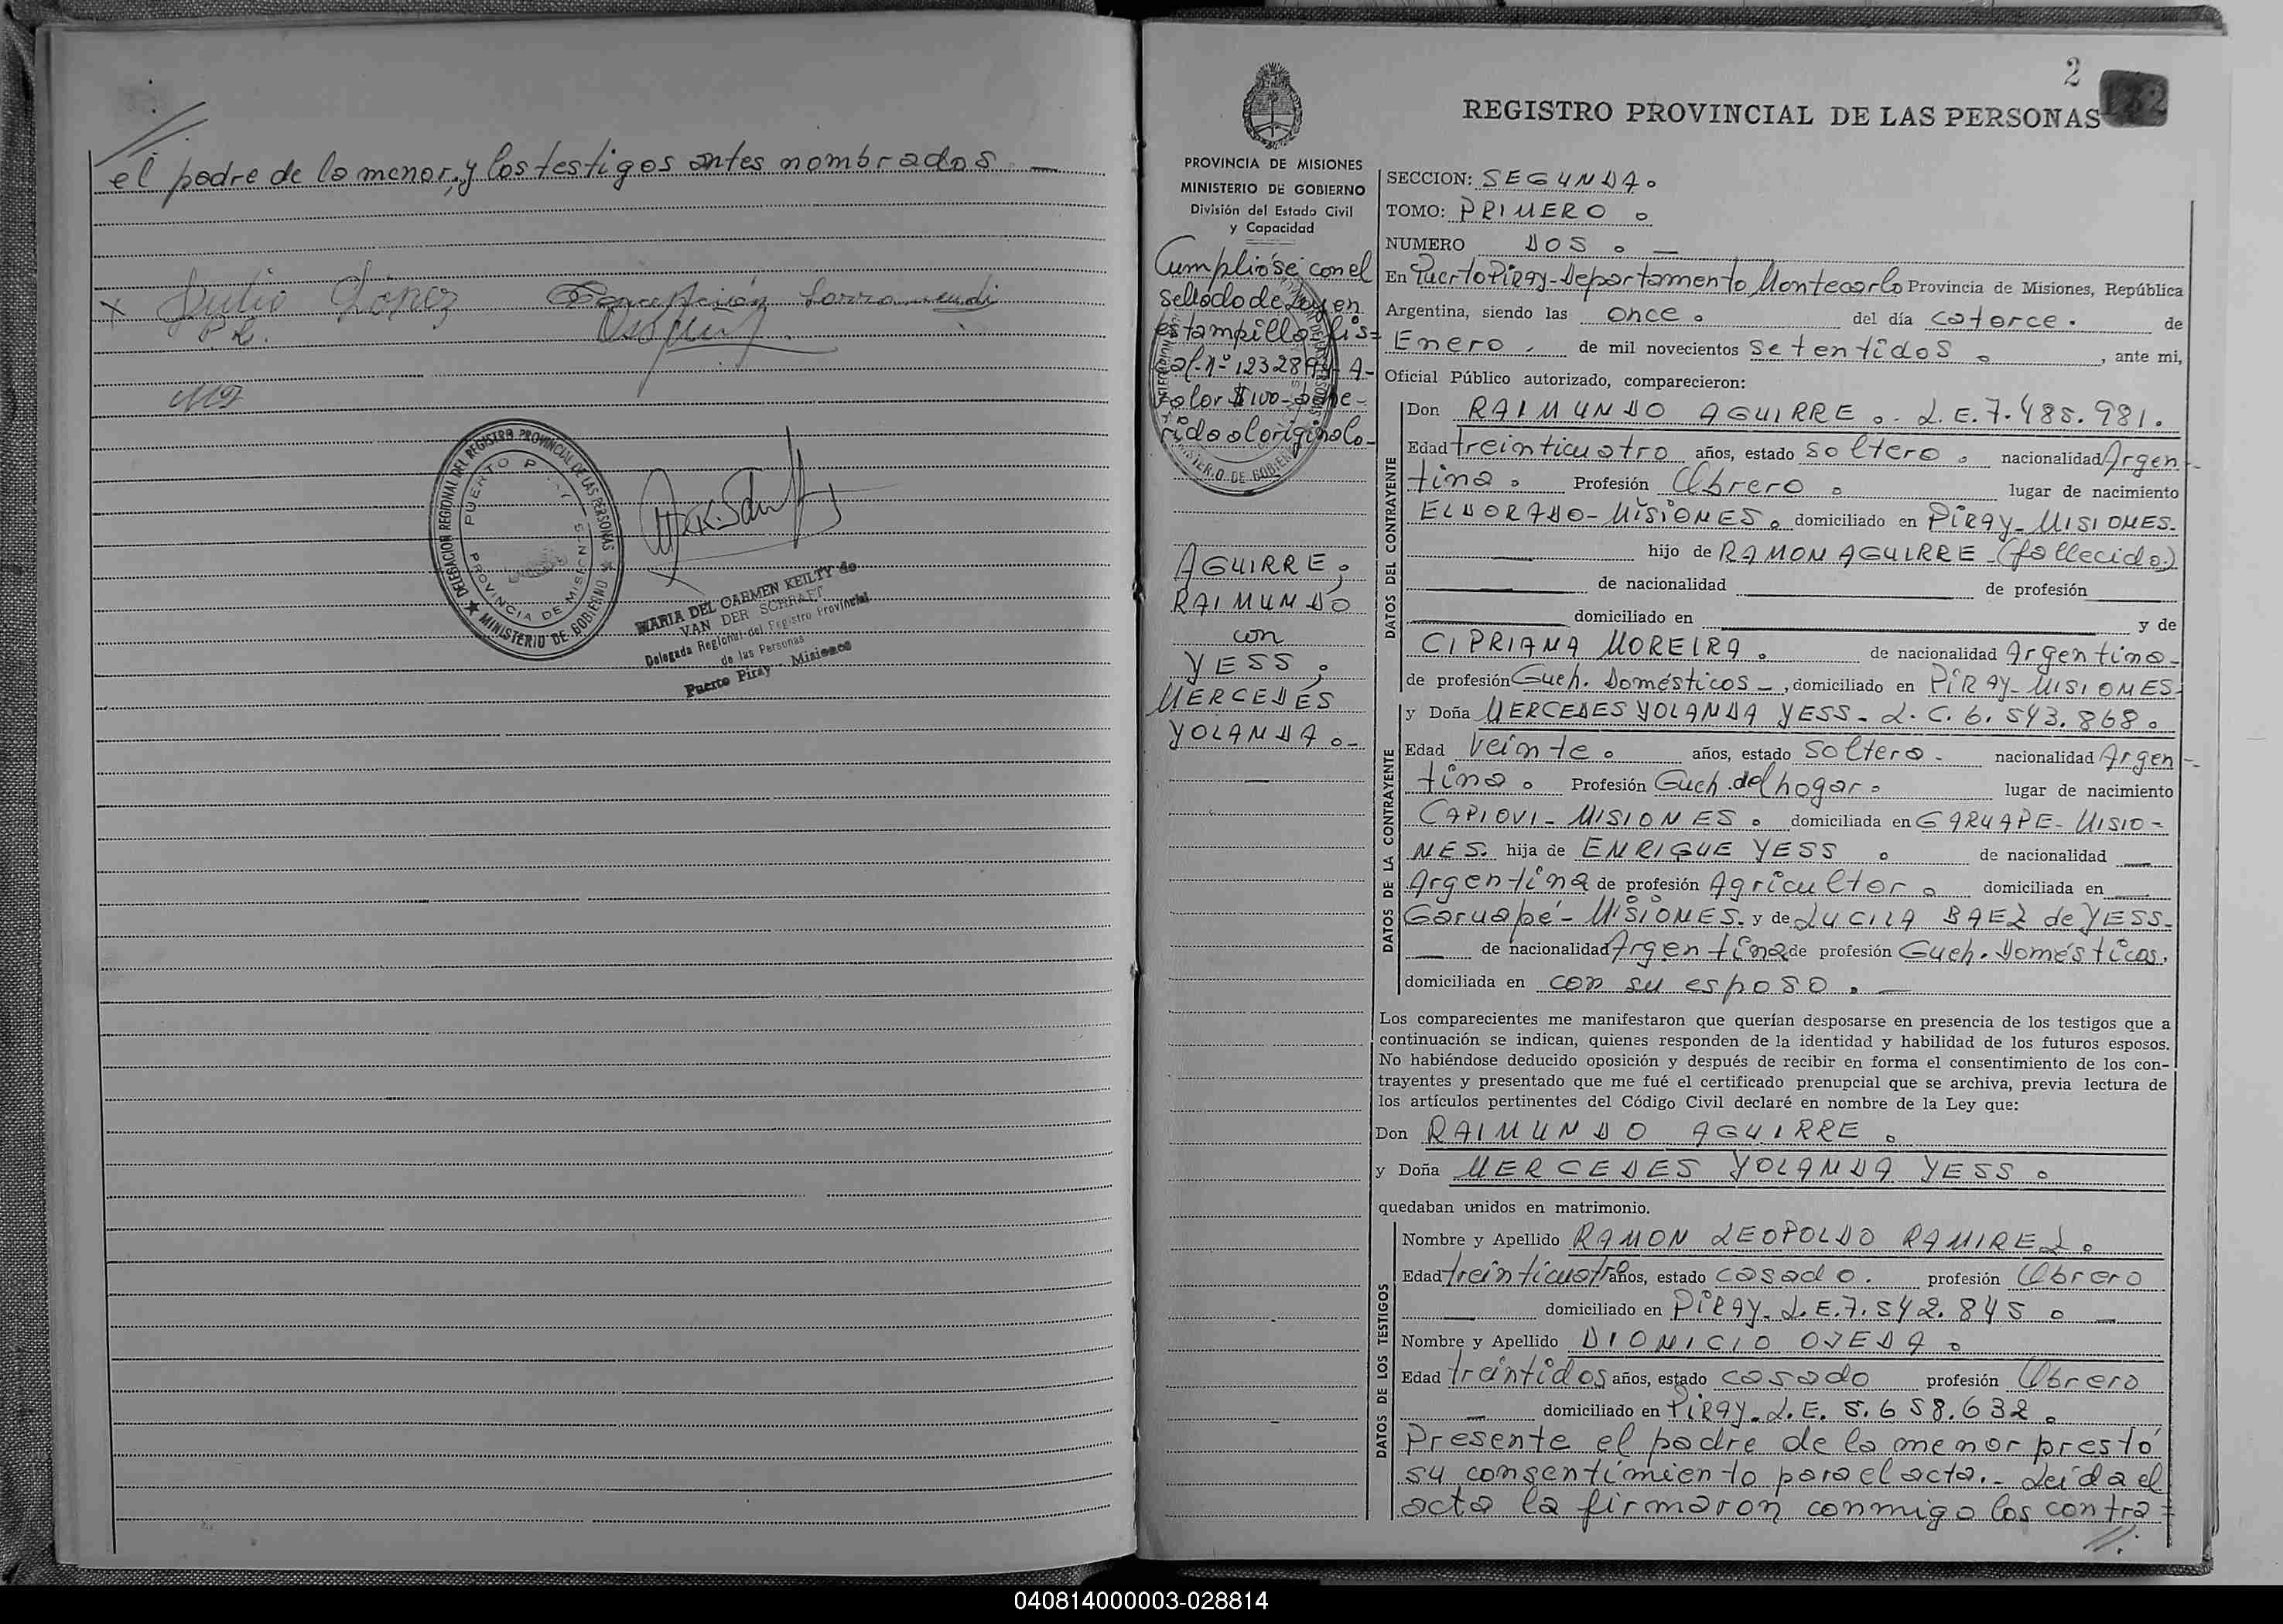 el padre de la menor, y los testigos antes nombrados. —
x Julio López
DELEGACION REGIONAL DEL REGISTRO PROVINCIAL DE LAS PERSONAS
MINISTERIO DE GOBIERNO
PUERTO PIRAY
PROVINCIA DE MISIONES
MARIA DEL CARMEN KEILTY de
VAN DER SCHRAFT
Delegada Regional del Registro Provincial
de las Personas
Puerto Piray - Misiones
2
REGISTRO PROVINCIAL DE LAS PERSONAS
PROVINCIA DE MISIONES
MINISTERIO DE GOBIERNO
División del Estado Civil
y Capacidad
Cumplióse con el
sellado de Ley en
estampilla fis=
cal-
valor $100-
rida al original o-
AGUIRRE;
RAIMUNDO
con
YESS;
MERCEDES
YOLANDA.-
SECCION: SEGUNDA.
TOMO: PRIMERO.
NUMERO DOS. —
En Puerto Piray-Departamento Montecarlo Provincia de Misiones, República
Argentina, siendo las once. del día catorce. de
Enero. de mil novecientos setentidos., ante mi,
Oficial Público autorizado, comparecieron:
DATOS DEL CONTRAYENTE
Don RAIMUNDO AGUIRRE.- L.E.7.485.981.
Edad treinticuatro años, estado soltero. nacionalidad Argen-
tina. Profesión Obrero. lugar de nacimiento
ELDORADO-MISIONES. domiciliado en PIRAY-MISIONES.
hijo de RAMON AGUIRRE-(fallecido)
de nacionalidad de profesión
domiciliado en y de
CIPRIANA MOREIRA. de nacionalidad Argentina-
de profesión Queh. Domésticos-, domiciliado en PIRAY-MISIONES
DATOS DE LA CONTRAYENTE
y Doña MERCEDES YOLANDA YESS-L.C.6.543.868.
Edad veinte. años, estado soltera. nacionalidad Argen-
tina. Profesión Queh. del hogar. lugar de nacimiento
CAPIOVI-MISIONES. domiciliada en GARUAPE-MISIO-
NES. hija de ENRIQUE YESS. de nacionalidad
Argentina de profesión Agricultor. domiciliada en
Garuapé-MISIONES. y de LUCILA BAEZ de YESS-
de nacionalidad Argentina de profesión Queh. Domésticos.
domiciliada en con su esposo. —
Los comparecientes me manifestaron que querían desposarse en presencia de los testigos que a
continuación se indican, quienes responden de la identidad y habilidad de los futuros esposos.
No habiéndose deducido oposición y después de recibir en forma el consentimiento de los con-
trayentes y presentado que me fué el certificado prenupcial que se archiva, previa lectura de
los artículos pertinentes del Código Civil declaré en nombre de la Ley que:
Don RAIMUNDO AGUIRRE.
y Doña MERCEDES YOLANDA YESS.
quedaban unidos en matrimonio.
DATOS DE LOS TESTIGOS
Nombre y Apellido RAMON LEOPOLDO RAMIREZ.
Edad treinticuatro años, estado casado. profesión Obrero
domiciliado en PIRAY-L.E.7.542.845. —
Nombre y Apellido DIONICIO OJEDA.
Edad treintidos años, estado casado profesión Obrero
domiciliado en PIRAY-L.E. 5.658.632.
Presente el padre de la menor prestó
su consentimiento para el acto.- Leída el
acta la firmaron conmigo los contra=
//.
040814000003-028814